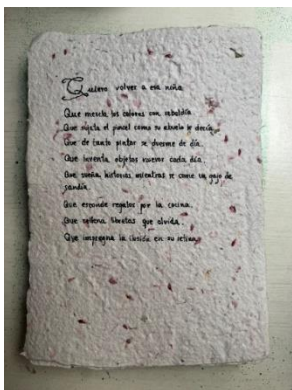 Quiero volver a esa niña
Que mezcla los colores con rebeldía
Que sujeta el pincel como su abuelo le decía
Que de tanto pintar se duerme de día
Que inventa objetos nuevos cada día
Que sueña historias mientras se come un gajo de
sandía
Que esconde regalos por la cocina.
Que rellena libretas que olvida.
Que impregna la ilusión en su retina.